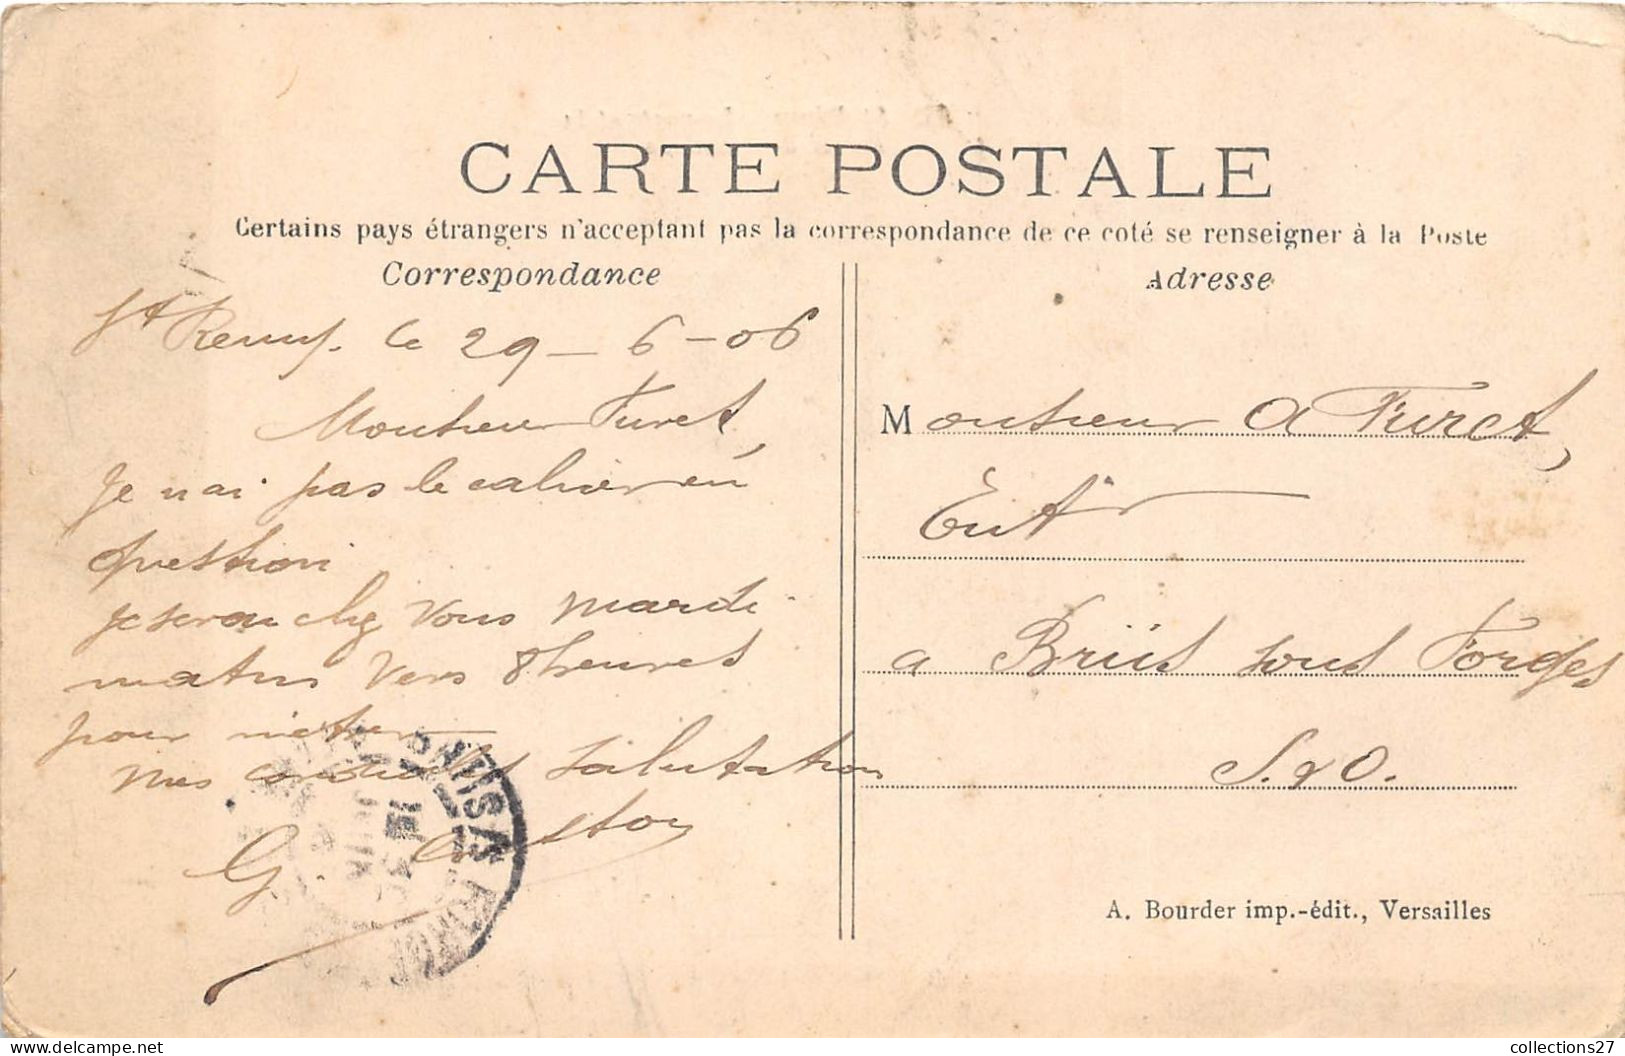 CARTE POSTALE
Certains pays étrangers n'acceptant pas la correspondance de ce coté se renseigner à la Poste
Correspondance
St Remy. le 29 - 6 - 06
Monsieur Furet,
Je nai pas le cahier en
question
je serai chez vous mardi
matin vers 8 heures
pour
Mes cordiales salutation
G.
Adresse
Monsieur A Furet,
Entr
a Briis sous Forges
S. & O.
A. Bourder imp.-édit., Versailles
BRIIS S FORGES
collections27